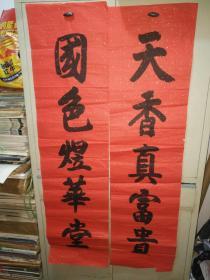 天香真富貴
國色煜華堂